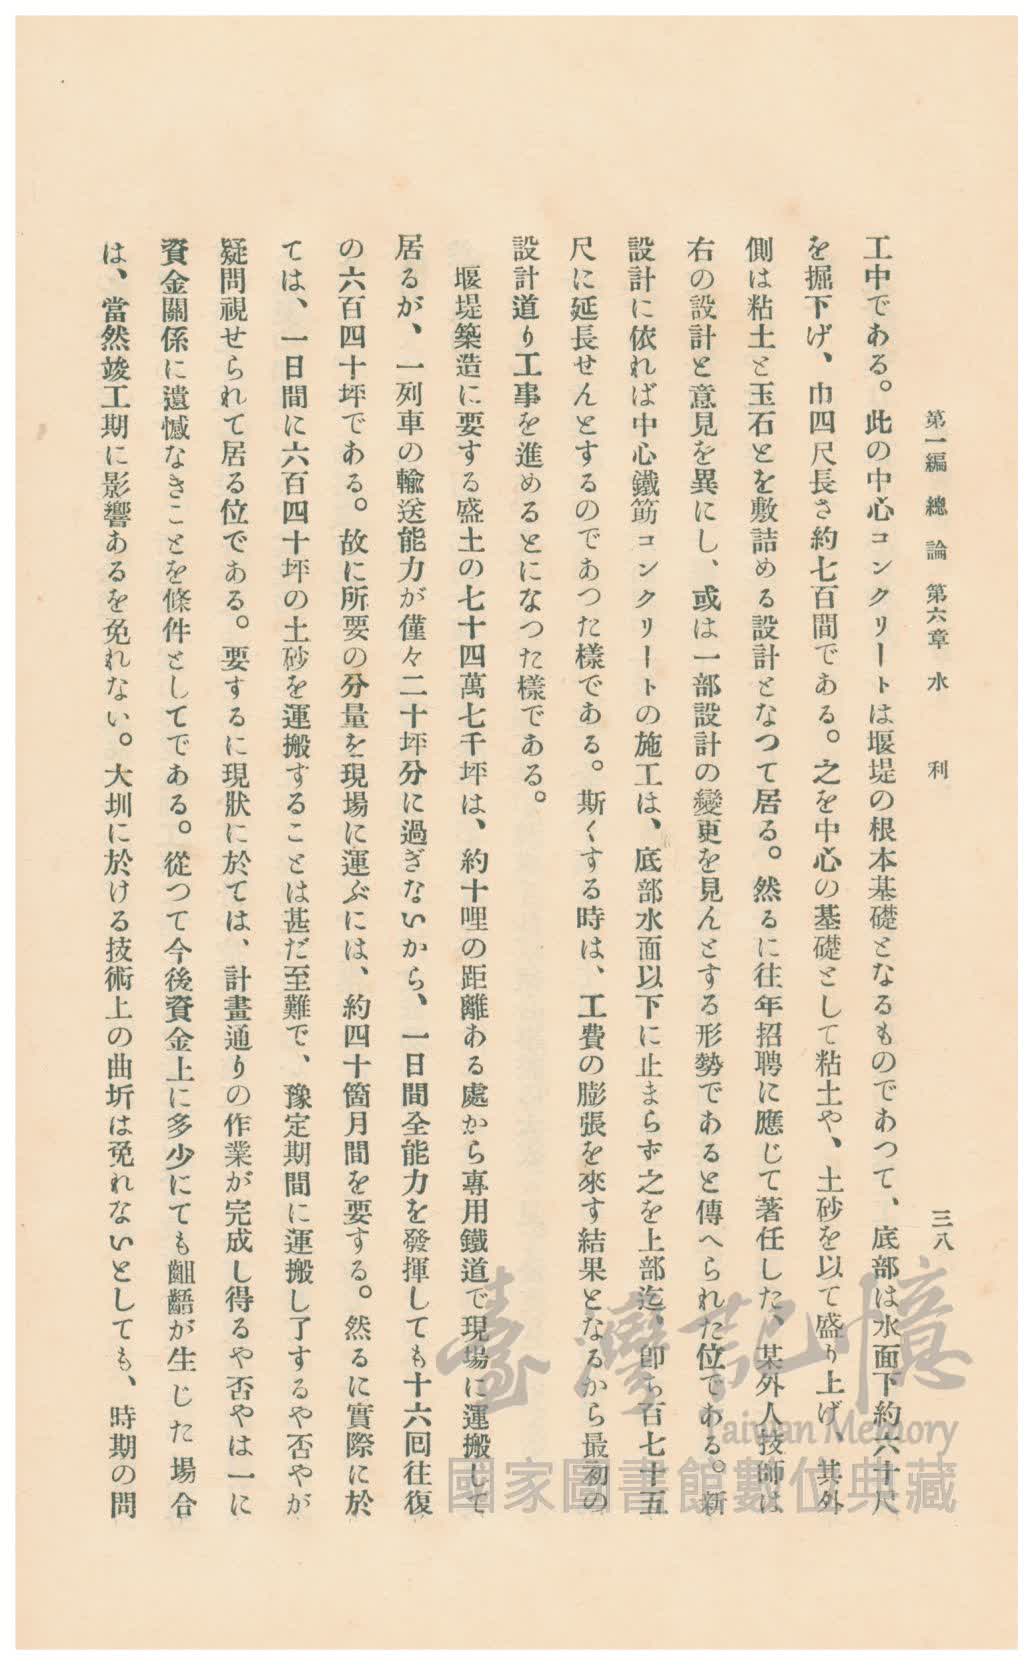 第一編 總論 第六章 水利
三八
工中である。此の中心コンクリートは堰堤の根本基礎となるものであつて、底部は水面下約六十尺
を掘下げ、巾四尺長さ約七百間である。之を中心の基礎として粘土や、土砂を以て盛り上げ、其外
側は粘土と玉石とを敷詰める設計となつて居る。然るに往年招聘に應じて著任した、某外人技師は
右の設計と意見を異にし、或は一部設計の變更を見んとする形勢であると傳へられた位である。新
設計に依れば中心鐵筋コンクリートの施工は、底部水面以下に止まらず之を上部迄、卽ち百七十五
尺に延長せんとするのであつた樣である。斯くする時は、工費の膨張を來す結果となるから最初の
設計道り工事を進めるとになつた樣である。
堰堤築造に要する盛土の七十四萬七千坪は、約十哩の距離ある處から專用鐵道で現場に運搬して
居るが、一列車の輸送能力が僅々二十坪分に過ぎないから、一日間全能力を發揮しても十六回往復
の六百四十坪である。故に所要の分量を現場に運ぶには、約四十箇月間を要する。然るに實際に於
ては、一日間に六百四十坪の土砂を運搬することは甚だ至難で、豫定期間に運搬し了するや否やが
疑問視せられて居る位である。要するに現狀に於ては、計畫通りの作業が完成し得るや否やは一に
資金關係に遺憾なきことを條件としてである。從つて今後資金上に多少にても齟齬が生じた場合
は、當然竣工期に影響あるを免れない。大圳に於ける技術上の曲折は免れないとしても、時期の問
臺灣記憶
Taiwan Memory
國家圖書館數位典藏